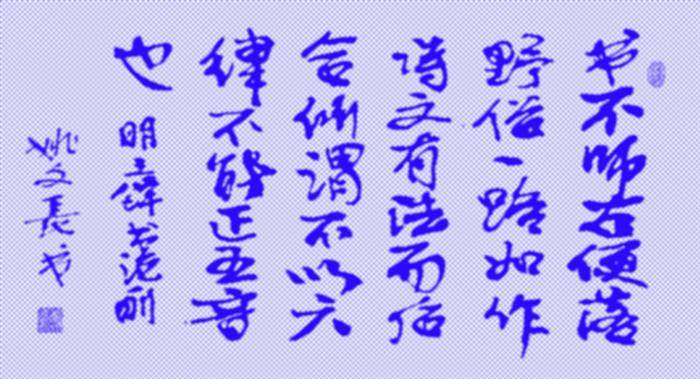 书不师古便落
野俗一路如作
诗文有法而后
合所谓不以六
律不能正五音
也 明
姚文长书